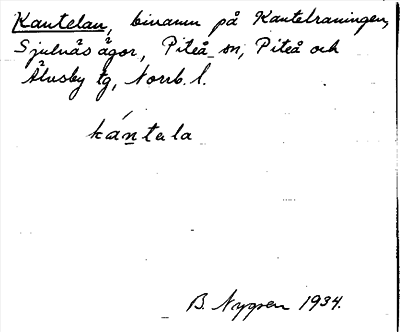 Kantelan, binamn på Kantelraningen,
Sjulnäs ågor, Piteå sn, Piteå och
Älvsby tg, Norrb. l.
kántala
B. Nygren 1934.